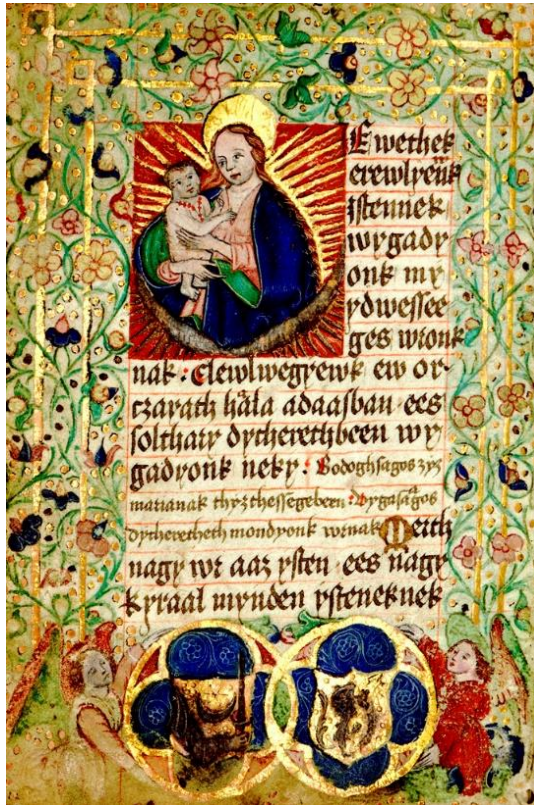 E wethek
erewlyeuk
istennek
wygady
onk my
ydwessee
ges wronk
nak : elewlwegyewk ew or-
czarath hala adaasban ees
solthary dycherethbeen wy
gadyonk neky : Bodoghsagos zyz
marianak thyzthessegebern : Dygasagos
dycherethech mondyonk wrnak Merth
nagy wr aaz ysten ees nagy
kyraal mynden ysteneknek